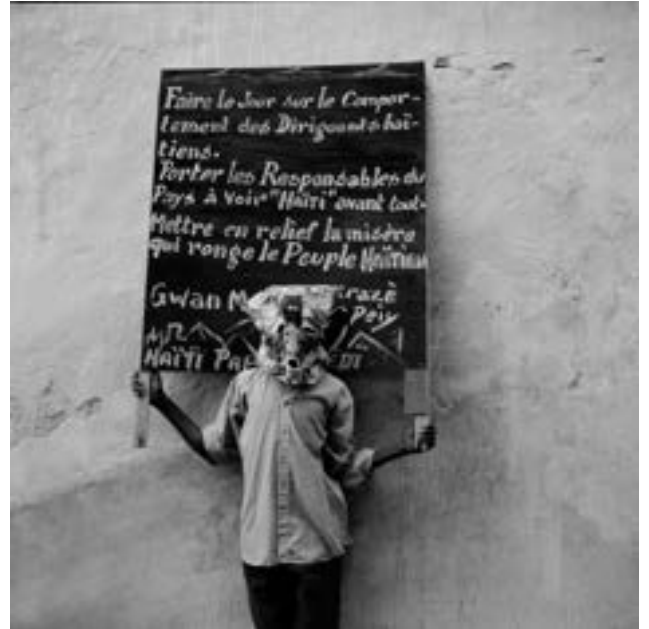 Faire le Jour sur le Compor-
tement des Dirigeants haï-
tiens.
Porter les Responsables du
Pays à voir "Haïti" avant tout-
Mettre en relief la misère
qui ronge le Peuple Haïtien
Gwan M
Peiy
HAÏTI